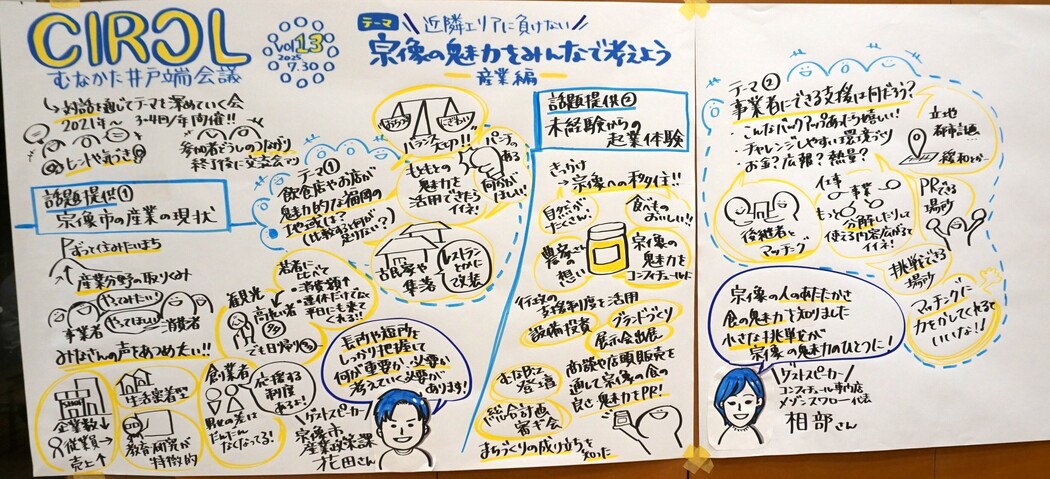 CIRCL
むなかた井戸端会議
vol.13
2025
7.30
テーマ
近隣エリアに負けない
宗像の魅力をみんなで考えよう
産業編
対話を通じてテーマを深めていく会
2021年〜 3-4回/年開催!!
ヒントや気づき
参加者どうしのつながり
終了後に交流会マリ
話題提供①
宗像市の産業の現状
ずっと住みたいまち
産業分野の取りくみ
やってみたい!
やってほしい
事業者
消費者
みなさんの声をあつめたい!!
企業数↓
従業員→
売上↑
生活密着型
教育研究が
特徴的
創業者
男女の差は
だんだん
なくなってる!
応援する
制度
あるよ!
若者に
比べて
・消費額↑
・連休だけでなく
平日にも来て
くれる!!
観光
高齢者
でも日帰り
テーマ①
飲食店やお店が
魅力的な福岡の
地域は?
(比較すると何が
足りない?)
おちつき
にぎわい
バランス
大切!!
もともとの
魅力を
活用できたら
イイネ!
パンチの
ある
何かが
ほしい!
古民家や
集落
レストラン
とかに
改装
長所や短所を
しっかり把握して
何が重要か、必要か
考えていく必要が
あります!
ゲストスピーカー
宗像市
産業政策課
花田さん
話題提供②
未経験からの
起業体験
きっかけ
→宗像への移住!!
自然が
たくさん!
食べもの
おいしい!!
農家さん
の
想い
宗像の
魅力を
コンフィチュールに
行政の
支援制度を活用
設備投資
ブランドづくり
展示会出展
むなかた
登壇
総合計画
審ぎ会
商談や店頭販売を
通して宗像の食の
良さ・魅力をPR!
まちづくりの成り立ちを
知った
テーマ②
事業者にできる支援は何だろう?
・こんなバックアップあったら嬉しい!
・チャレンジしやすい環境づくり
・お金?広報?熱量?
立地
都市計画
緩和とか…
後継者と
マッチング
仕事
事業
もっと
分解したりして
使える内容広がると
イイネ!
PRできる
場所
挑戦できる
場所
マッチングに
力をかしてくれると
いいな!!
宗像の人のあたたかさ
食の魅力を知りました
小さな挑戦が
宗像の魅力のひとつに!
ゲストスピーカー
コンフィチュール専門店
メゾンスワロー代表
相部さん